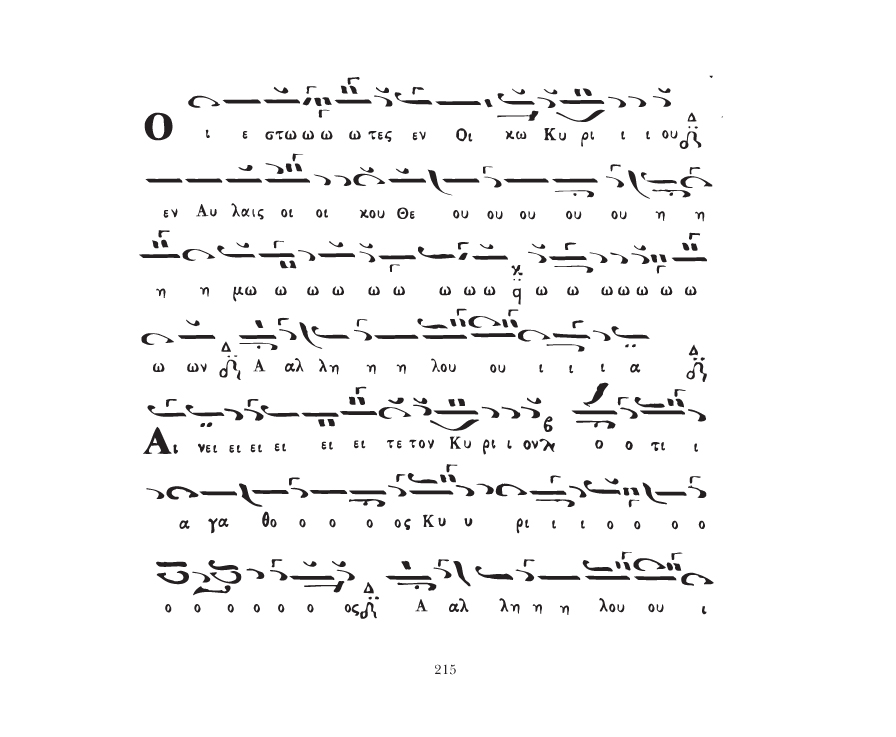 Ο ι ε στω ω ω ω τες εν Οι κω Κυ ρι ι ι ου
εν Αυ λαις οι οι κου Θε ου ου ου ου ου η η
η η μω ω ω ω ω ω ω ω ω ω ω ω ω ω ω ω
ω ων Α αλ λη η η λου ου ι ι ι α
Αι νει ει ει ει ει ει τε τον Κυ ρι ι ον ο ο τι ι
α γα θο ο ο ο ος Κυ υ ρι ι ι ο ο ο ο
ο ο ο ο ο ο ος Α αλ λη η η λου ου ι
215